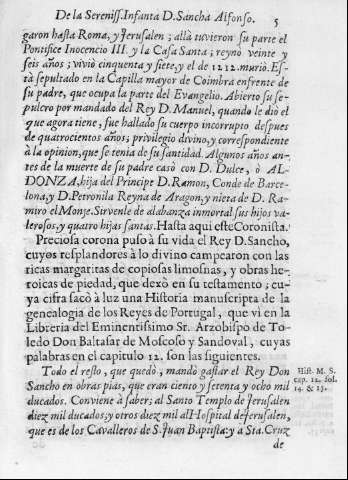 De la Sereniss. Infanta D. Sancha Alfonso. 5
garon hasta Roma, y Jerusalen; allà tuvieron su parte el
Pontifice Inocencio III. y la Casa Santa; reynò veinte y
seis años; vivió cinquenta y siete, y el de 1212. murió. Es-
tà sepultado en la Capilla mayor de Coimbra enfrente de
su padre, que ocupa la parte del Evangelio. Abierto su se-
pulcro por mandado del Rey D. Manuel, quando le diò el
que agora tiene, fue hallado su cuerpo incorrupto despues
de quatrocientos años; privilegio divino, y correspondiente
à la opinion, que se tenia de su santidad. Algunos años an-
tes de la muerte de su padre casò con D. Dulce, ò AL-
DONZA, hija del Principe D. Ramon, Conde de Barce-
lona, y D. Petronila Reyna de Aragon, y nieta de D. Ra-
miro el Monje. Sirvenle de alabanza inmortal sus hijos va-
lerosos, y quatro hijas santas. Hasta aqui este Coronista.
Preciosa corona puso à su vida el Rey D. Sancho,
cuyos resplandores à lo divino campearon con las
ricas margaritas de copiosas limosnas, y obras he-
roicas de piedad, que dexò en su testamento; cu-
ya cifra sacò à luz una Historia manuscripta de la
genealogia de los Reyes de Portugal, que vi en la
Libreria del Eminentissimo Sr. Arzobispo de To-
ledo Don Baltasar de Moscoso y Sandoval, cuyas
palabras en el capitulo 12. son las siguientes.
Todo el resto, que quedò, mandò gastar el Rey Don
Sancho en obras pias, que eran ciento y setenta y ocho mil
ducados. Conviene à saber; al Santo Templo de Jerusalen
diez mil ducados; y otros diez mil al Hospital de Jerusalen,
que es de los Cavalleros de S. Juan Baptista: y a Sta. Cruz
de
Hist. M. S.
cap. 12. fol.
14. & 15.